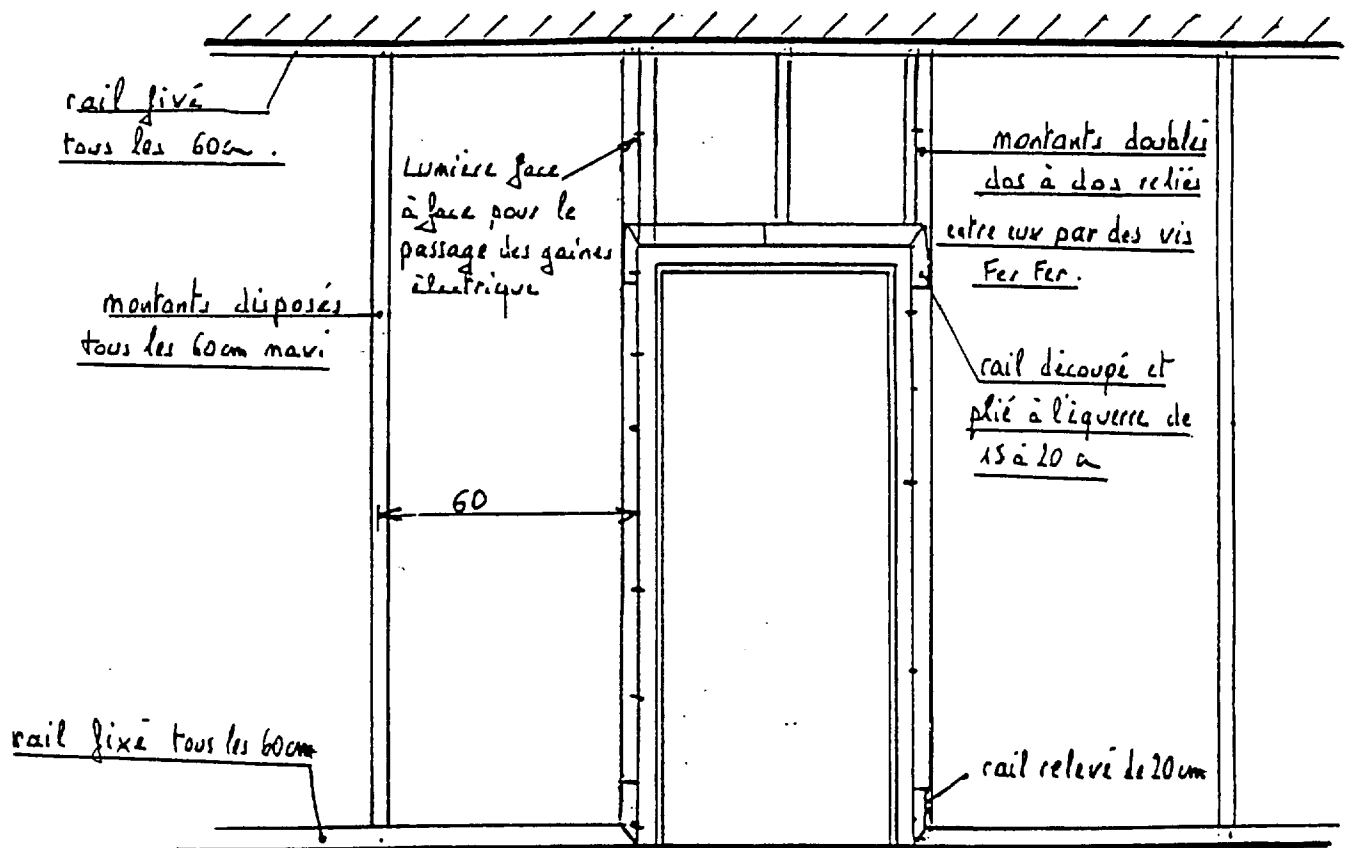 rail fixé
tous les 60cm.
Lumière face
à face pour le
passage des gaines
électrique
montants doublés
dos à dos reliés
entre eux par des vis
Fer Fer.
montants disposés
tous les 60cm maxi
rail découpé et
plié à l'équerre de
15 à 20 c
60
rail fixé tous les 60cm
rail relevé de 20cm